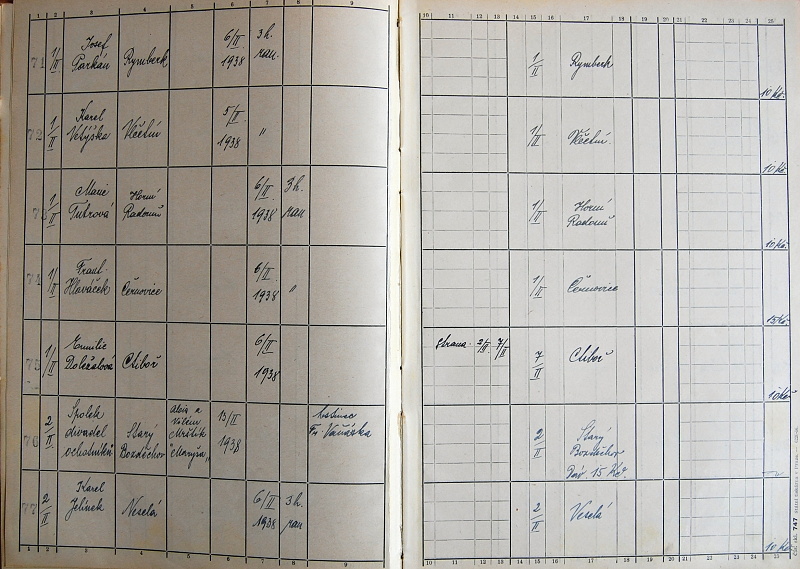 1 2 3 4 5 6 7 8 9
71 1/II Josef Parkán Rymberk 6/II 1938 3 h. ran.
72 1/II Karel Včetní 5/II 1938 "
73 1/II Marie Horní Radouň 6/II 1938 3 h. ran
74 1/II Frant. Hlaváček Černovice 6/II 1938 "
75 1/II Emilie Doležalová Ctiboř 6/II 1938
76 2/II Spolek divadel ochotníků Starý Bozděchov Alois a Vilém Mrštík "Maryša" 13/II 1938 hostinec Fr. Vaňáska
77 2/II Karel Jelínek Veselá 6/II 1938 3 h. ran
1 2 3 4 5 6 7 8 9
10 11 12 13 14 15 16 17 18 19 20 21 22 23 24 25
1/II Rymberk 10 Kč.
1/II Včetní. 10 Kč
1/II Horní Radouň 10 Kč.
1/II Černovice 15 Kč.
strana 2/II 7/II 7/II Ctiboř 10 Kč
2/II Starý Bozděchov
Páv. 15 Kč.
2/II Veselá 10 Kč
10 11 12 13 14 15 16 17 18 19 20 21 22 23 24 25
Čís. skl. 747